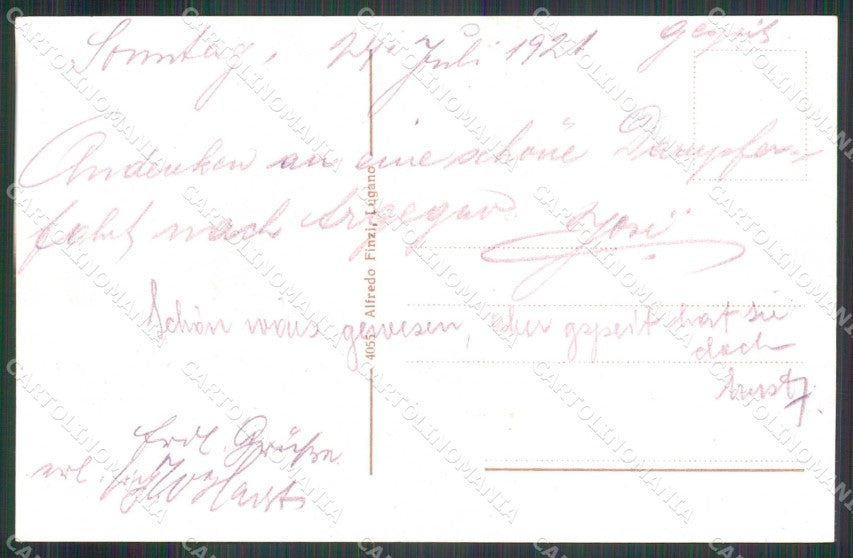 Sonntag, 24. Juli 1921
Andenken an eine schöne Dampfer=
fahrt nach Argegno.
Schön wars gewesen, aber gspeit hat sie
doch
Ernst
frdl. Grüße
4055 Alfredo Finzi, Lugano
CARTOLINOMANIA